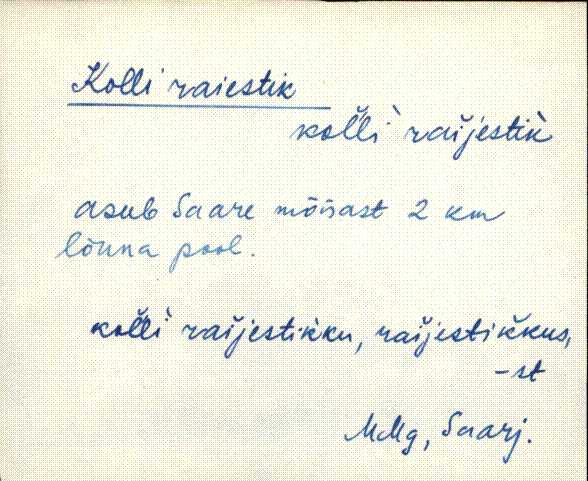 Kolli raiestik
kol̆l̆i` raĭjestik̀
asub Saare mõisast 2 km
lõuna pool.
kol̆l̆i` raĭjestik̀ku, raĭjestik̆kus,
-st
MMg, Saarj.